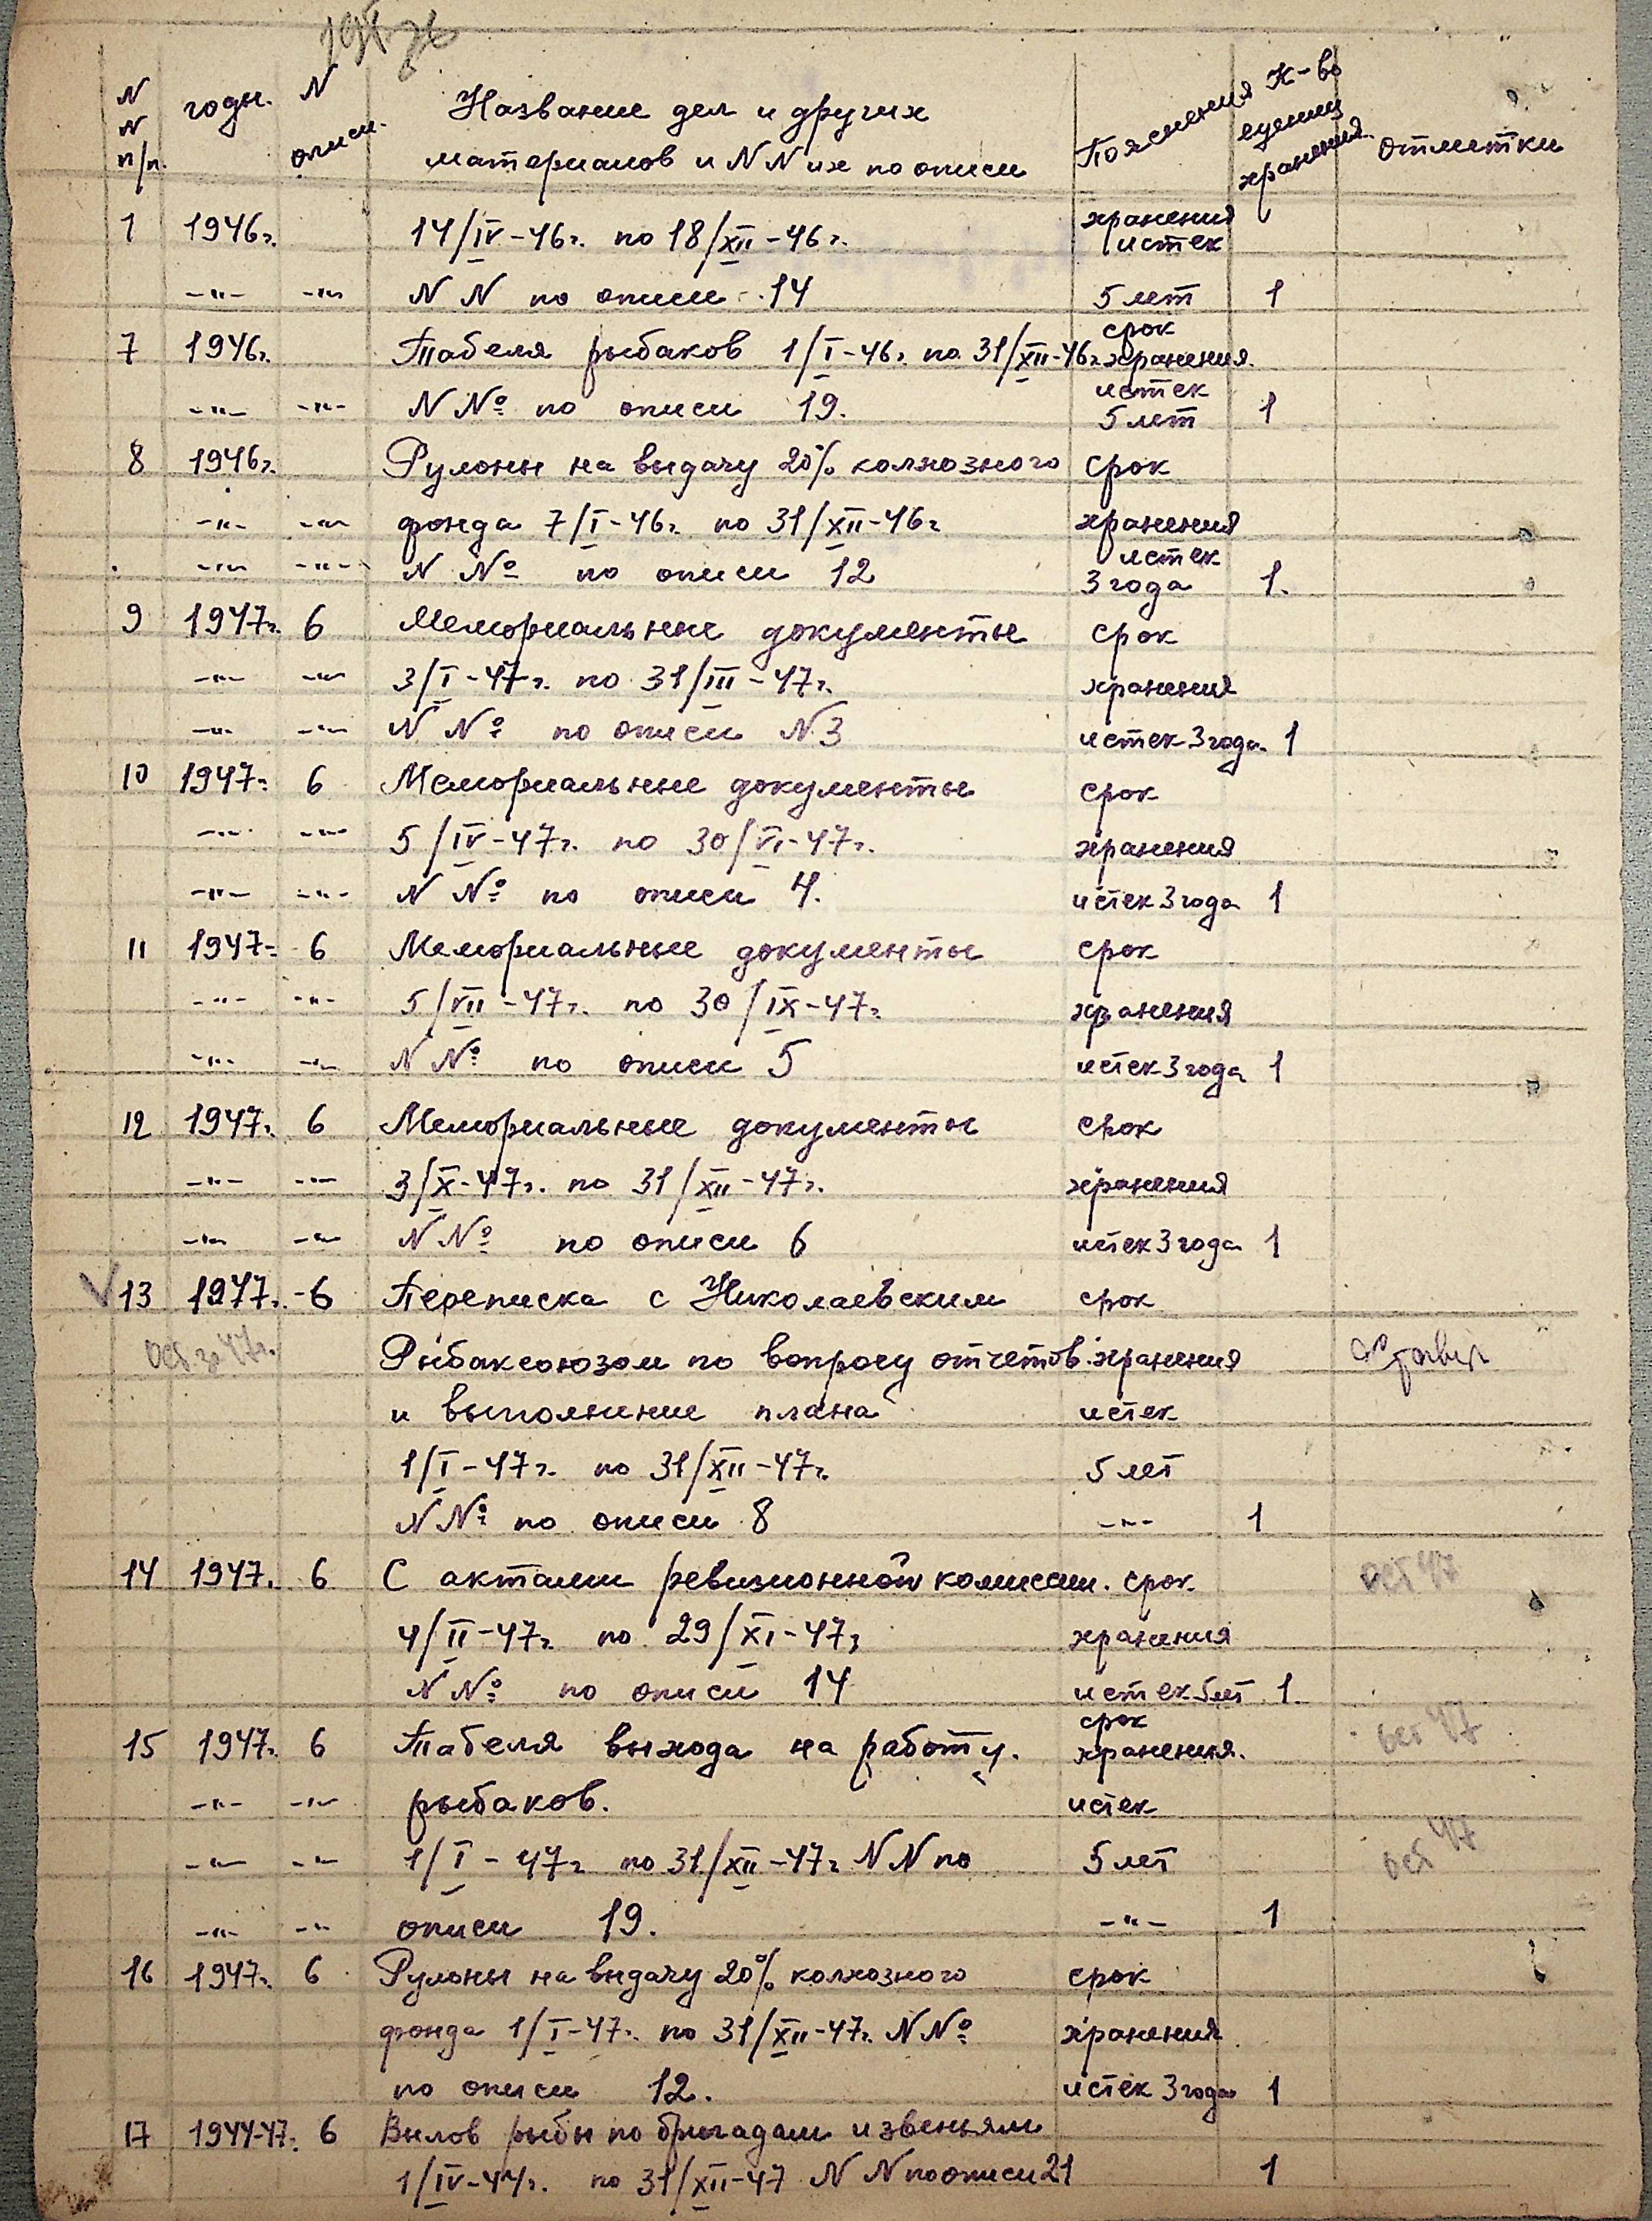 N N п/п. годы. N описи. Название дел и других материалов и N N их по описи Пояснения К-во единиц хранения. отметки
1 1946г. 14/IV-46г. по 18/XII-46г. хранения истек
-"- -"- N N по описи 14 5 лет 1
7 1946г. Табеля рыбаков 1/I-46г. по 31/XII-46г. срок хранения.
-"- -"- N №: по описи 19. истек 5 лет 1
8 1946г. Рулоны на выдачу 20% колхозного срок
-"- -"- фонда 7/I-46г. по 31/XII-46г хранения
-"- -"- N № по описи 12 истек 3 года 1.
9 1947г. 6 Мемориальные документы срок
-"- -"- 3/I-47г. по 31/III-47г. хранения
-"- -"- N № по описи N 3 истек 3 года. 1
10 1947г 6 Мемориальные документы срок
-"- -"- 5/IV-47г. по 30/VI-47г. хранения
-"- -"- N № по описи 4. истек 3 года 1
11 1947г 6 Мемориальные документы срок
-"- -"- 5/VII-47г. по 30/IX-47г. хранения
-"- -"- N № по описи 5 истек 3 года 1
12 1947г. 6 Мемориальные документы срок
-"- -"- 3/X-47г. по 31/XII-47г. хранения
-"- -"- N № по описи 6 истек 3 года 1
13 1947г. 6 Переписка с Николаевским срок
ост. за 47г. Рыбаксоюзом по вопросу отчетов хранения
и выполнение плана истек
1/I-47г. по 31/XII-47г. 5 лет
N № по описи 8 -"- 1
14 1947г. 6 С актами ревизионной комиссии. срок ост 47
4/II-47г. по 29/XI-47г хранения
N № по описи 14 истек 5 лет 1.
15 1947г. 6 Табеля выхода на работу. срок хранения. ост 47
-"- -"- рыбаков. истек
-"- -"- 1/I-47г по 31/XII-47г N N по 5 лет ост 47
-"- -"- описи 19. -"- 1
16 1947г. 6 Рулоны на выдачу 20% колхозного срок
фонда 1/I-47г. по 31/XII-47г. N № хранения
по описи 12. истек 3 года 1
17 1944-47г. 6 Вылов рыбы по бригадам и звеньям
1/IV-44г. по 31/XII-47 N N по описи 21 1